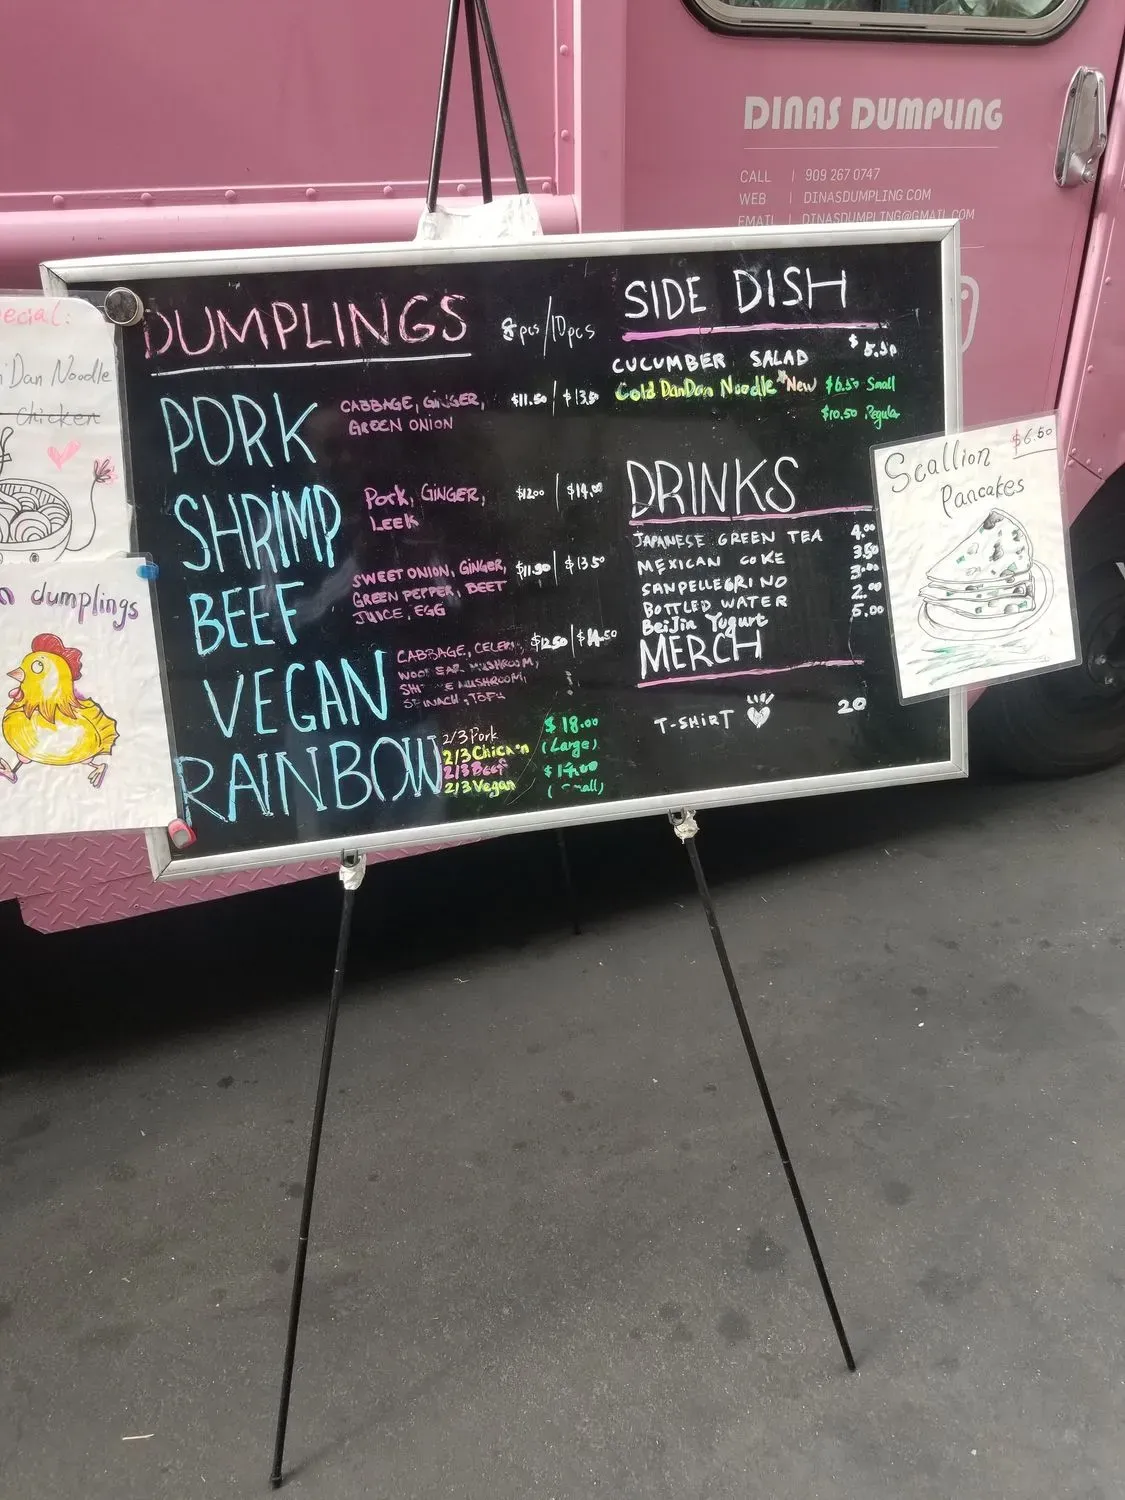 DINAS DUMPLING
CALL | 909 267 0747
WEB | DINASDUMPLING.COM
EMAIL | DINASDUMPLING@GMAIL.COM
ecial:
Dan Noodle
chicken
n dumplings
DUMPLINGS 8pcs/10pcs
PORK CABBAGE, GINGER, $11.50 | $13.50
GREEN ONION
SHRIMP Pork, GINGER, $12.00 | $14.00
LEEK
BEEF SWEET ONION, GINGER, $11.50 | $13.50
GREEN PEPPER, BEET
JUICE, EGG
VEGAN CABBAGE, CELERY, $12.50 | $14.50
WOOD EAR MUSHROOM,
MUSHROOM,
SPINACH, TOFU
RAINBOW 2/3 Pork $18.00
2/3 Chicken (Large)
2/3 Beef
2/3 Vegan (Small)
SIDE DISH
CUCUMBER SALAD $5.50
Cold DanDan Noodle *New $6.50 Small
$10.50 Regular
DRINKS
JAPANESE GREEN TEA 4.00
MEXICAN COKE 3.50
SANPELLEGRINO 3.00
BOTTLED WATER 2.00
BeiJin Yugurt 5.00
MERCH
T-SHIRT 20
$6.50
Scallion
Pancakes